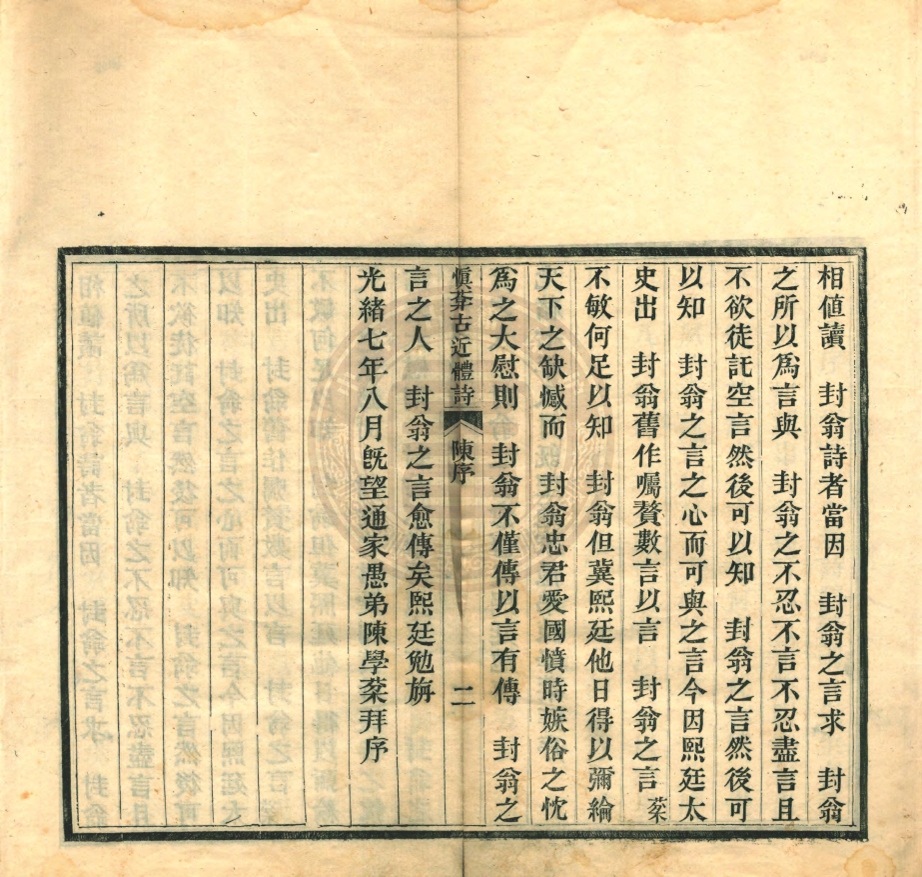 相値讀　封翁詩者當因　封翁之言求　封翁
之所以爲言與　封翁之不忍不言不忍盡言且
不欲徒託空言然後可以知　封翁之言然後可
以知　封翁之言之心而可與之言今因熙廷太
史出　封翁舊作囑贅數言以言　封翁之言棻
不敏何足以知　封翁但冀熙廷他日得以彌綸
天下之缺憾而　封翁忠君愛國憤時嫉俗之忱
爲之大慰則　封翁不僅傳以言有傳　封翁之
愼葊古近體詩　陳序　二
言之人　封翁之言愈傳矣熙廷勉旃
光緒七年八月旣望通家愚弟陳學棻拜序